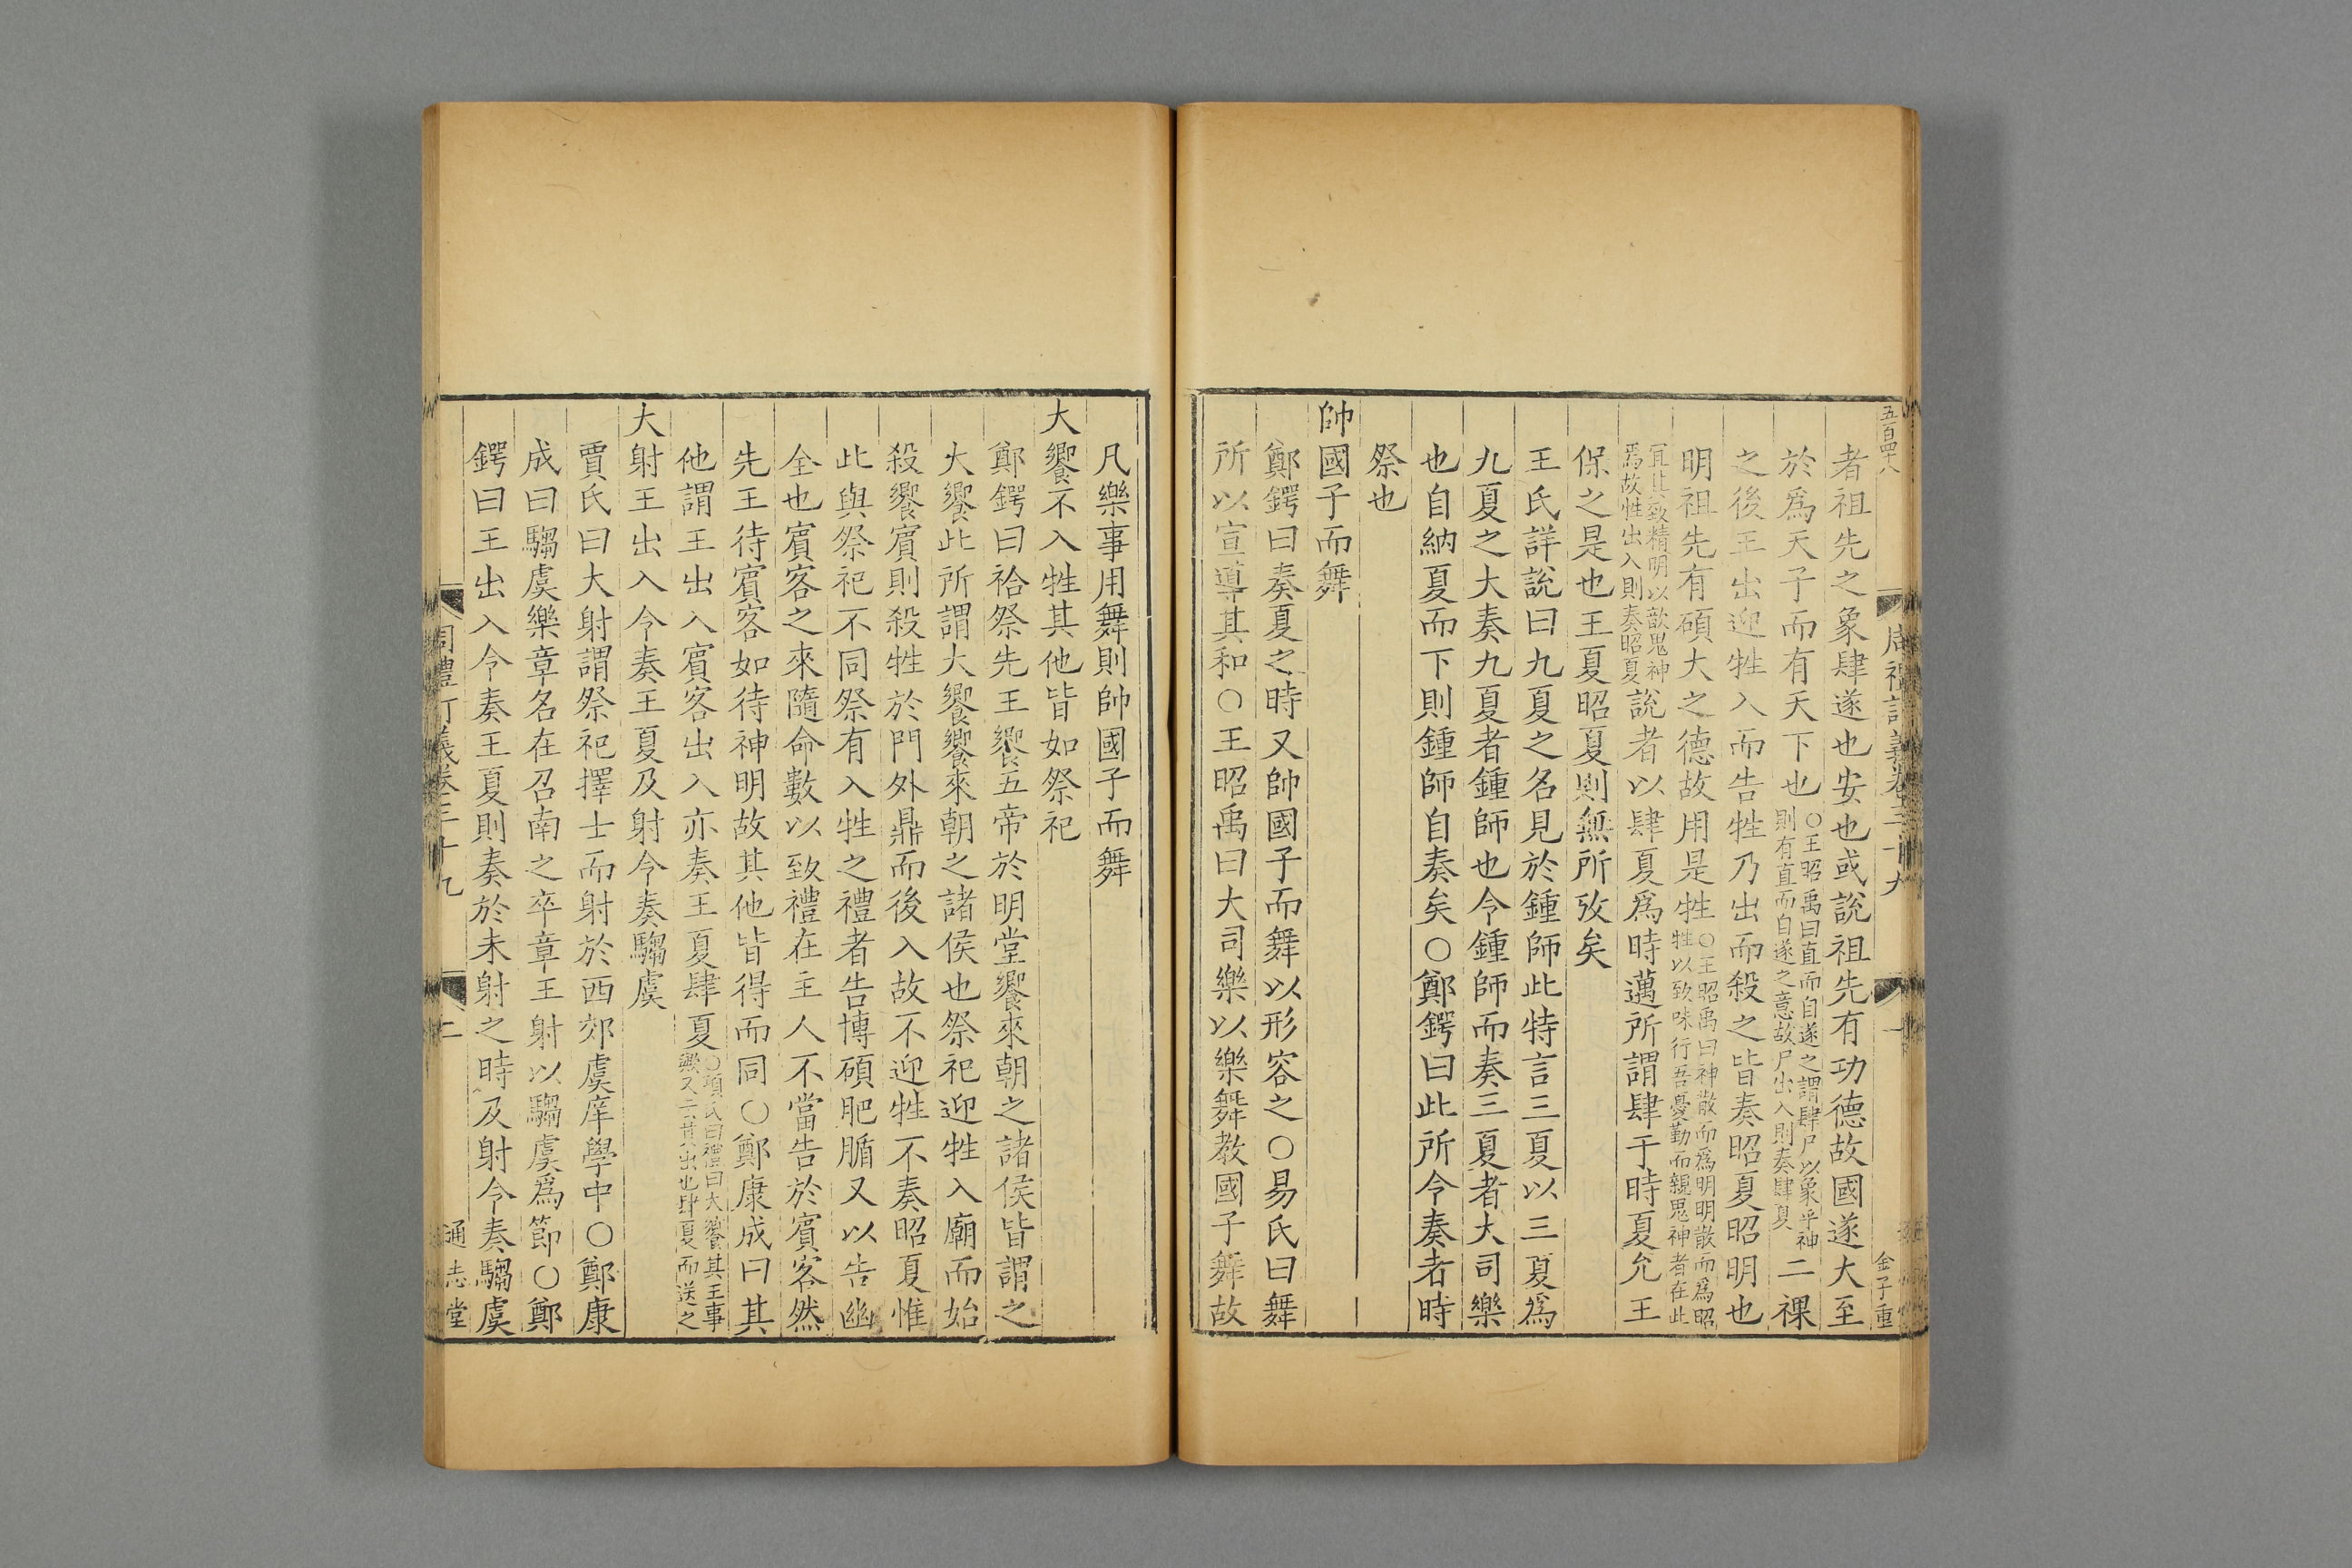 五百四十八
周禮訂義卷三十九
一
金子重
者祖先之象肆遂也安也或說祖先有功德故國遂大至
於爲天子而有天下也○王昭禹曰直而自遂之謂肆尸以象乎神則有直而自遂之意故尸出入則奏肆夏二祼
之後王出迎牲入而告牲乃出而殺之皆奏昭夏昭明也
明祖先有碩大之德故用是牲○王昭禹曰神散而爲明明散而爲昭牲以致味行吾憂勤而親鬼神者在此
冝其致精明以歆鬼神焉故牲出入則奏昭夏說者以肆夏爲時邁所謂肆于時夏允王
保之是也王夏昭夏則無所攷矣
王氏詳說曰九夏之名見於鍾師此特言三夏以三夏爲
九夏之大奏九夏者鍾師也令鍾師而奏三夏者大司樂
也自納夏而下則鍾師自奏矣○鄭鍔曰此所令奏者時
祭也
帥國子而舞
鄭鍔曰奏夏之時又帥國子而舞以形容之○易氏曰舞
所以宣導其和○王昭禹曰大司樂以樂舞教國子舞故
凡樂事用舞則帥國子而舞
大饗不入牲其他皆如祭祀
鄭鍔曰祫祭先王饗五帝於明堂饗來朝之諸侯皆謂之
大饗此所謂大饗饗來朝之諸侯也祭祀迎牲入廟而始
殺饗賓則殺牲於門外鼎而後入故不迎牲不奏昭夏惟
此與祭祀不同祭有入牲之禮者告博碩肥腯又以告幽
全也賓客之來隨命數以致禮在主人不當告於賓客然
先王待賓客如待神明故其他皆得而同○鄭康成曰其
他謂王出入賓客出入亦奏王夏肆夏○項氏曰禮曰大饗其王事歟又云其出也肆夏而送之
大射王出入令奏王夏及射令奏騶虞
賈氏曰大射謂祭祀擇士而射於西郊虞庠學中○鄭康
成曰騶虞樂章名在召南之卒章王射以騶虞爲節○鄭
鍔曰王出入令奏王夏則奏於未射之時及射令奏騶虞
周禮訂義卷三十九
二
通志堂